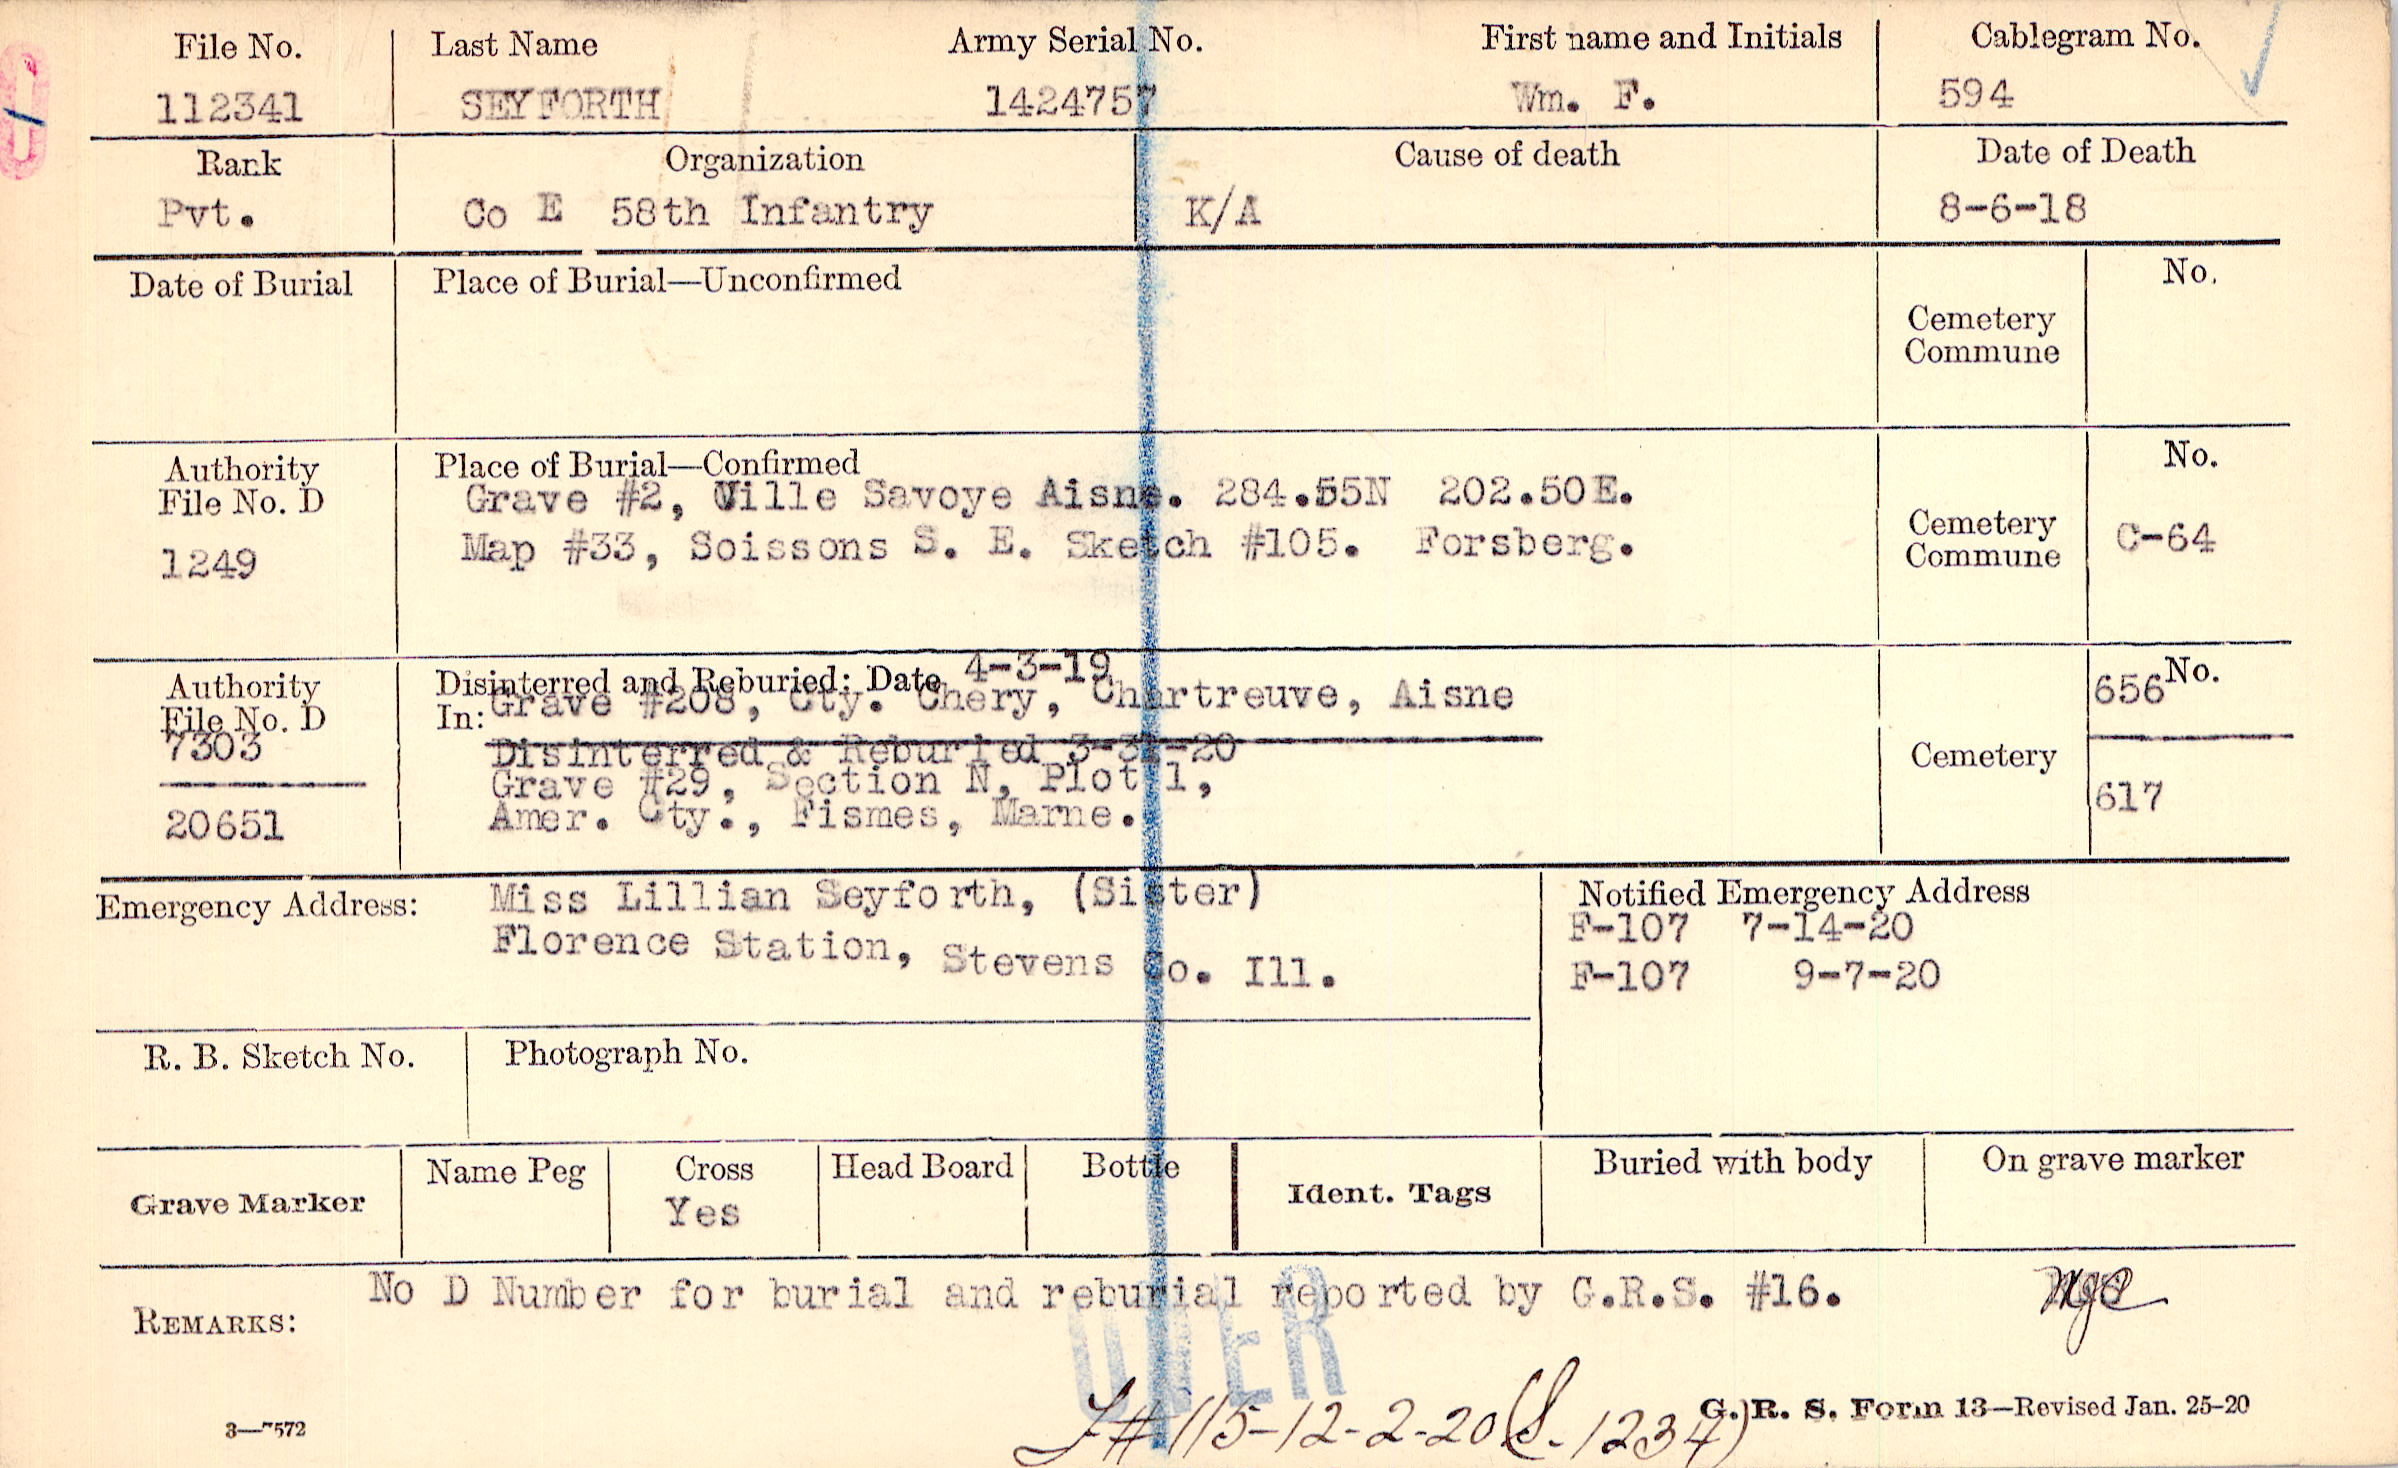 File No. Last Name Army Serial No. First name and Initials Cablegram No.
112341 SEYFORTH 1424757 Wm. F. 594
Rank Organization Cause of death Date of Death
Pvt. Co E 58th Infantry K/A 8-6-18
Date of Burial Place of Burial—Unconfirmed No.
Cemetery
Commune
Authority Place of Burial—Confirmed No.
File No. D Grave #2, Ville Savoye Aisne. 284.55N 202.50E.
1249 Map #33, Soissons S. E. Sketch #105. Forsberg.
Cemetery
Commune C-64
Authority Disinterred and Reburied: Date 4-3-19 No.
File No. D In: Grave #208, Cty. Chery, Chartreuve, Aisne 656
7303 Disinterred & Reburied Cemetery
Grave #29, Section N, Plot 1,
20651 Amer. Cty., Fismes, Marne. 617
Emergency Address: Miss Lillian Seyforth, (Sister) Notified Emergency Address
Florence Station, Stevens Co. Ill. F-107 7-14-20
F-107 9-7-20
R. B. Sketch No. Photograph No.
Grave Marker Name Peg Cross Head Board Bottle Ident. Tags Buried with body On grave marker
Yes
REMARKS: No D Number for burial and reburial reported by G.R.S. #16.
OVER
#115-12-2-20 (S. 1234)
3—7572 G. R. S. Form 13—Revised Jan. 25-20